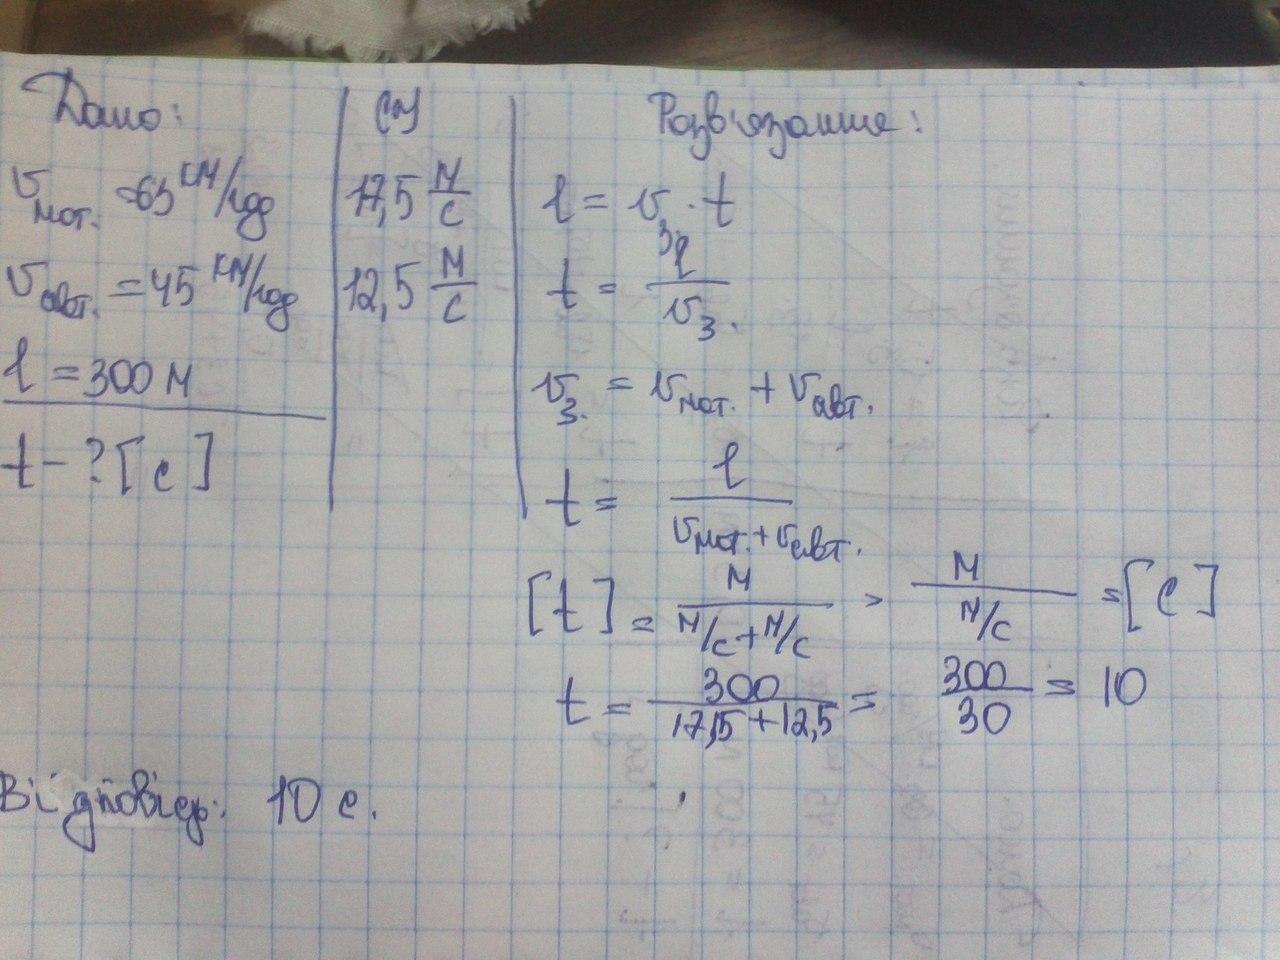 Дано:
υмот. = 63 км/год
υавт. = 45 км/год
l = 300 м
t - ? [с]
СИ
17,5 м/с
12,5 м/с
Розв'язання:
l = υз · t
t = l/υз.
υз. = υмот. + υавт.
t = l/(υмот. + υавт.)
[t] = м/(м/с + м/с) = м/(м/с) = [с]
t = 300/(17,5 + 12,5) = 300/30 = 10
Відповідь: 10 с.